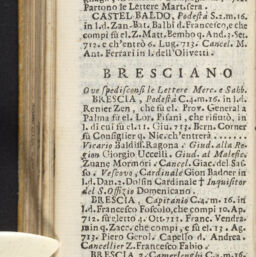 Partono le Lettere Mart.sera.
CASTEL BALDO, Podestà S.2.m.16.
in l.d.Zan-Bat. Balbi d.Francesco, e che
compì fu el Z. Matt. Bembo q. And. 3. Set.
712. e ch'entrò 6. Lug. 713. Cancel. M.
Ant. Ferrari in l. dell'Olivetti.
BRESCIANO
Ove spedisconsi le Lettere Merc. e Sabb.
BRESCIA, Podestà C.4.m.16. in l.d.
Renier Zen, che fù el Prov. General a
Palma fu el Lor. Pisani, che rifiutò, in
l. di cui fu el 11. Giu. 713. Bern. Corner
fu Consiglier q. Nic.ch'entrerà ........
Vicario Baldiss. Ragona. Giud. alla Ra-
gion Giorgio Uccelli. Giud. al Malefic.
Zuane Mormori. Cancel. Giac. del Sas-
so. Vescovo, Cardinale Gion Badoer in
l.d.Dan.2. Dolfin Cardinale † Inquisitor
del S. Offizio Domenicano.
BRESCIA, Capitanio C.4. m. 16. in
l.d.Francesco Foscolo, che compì 10. Ap.
712. fu eletto 4. Ott. 711. Franc. Vendra-
min q. Zacc. che compì, e fu el. 13. Ag.
713. Piero Gerol. Capello d. Andrea.
Cancellier Z. Francesco Fabio.
BRESCIA 2. Camerlenghi C.2. m. 16.